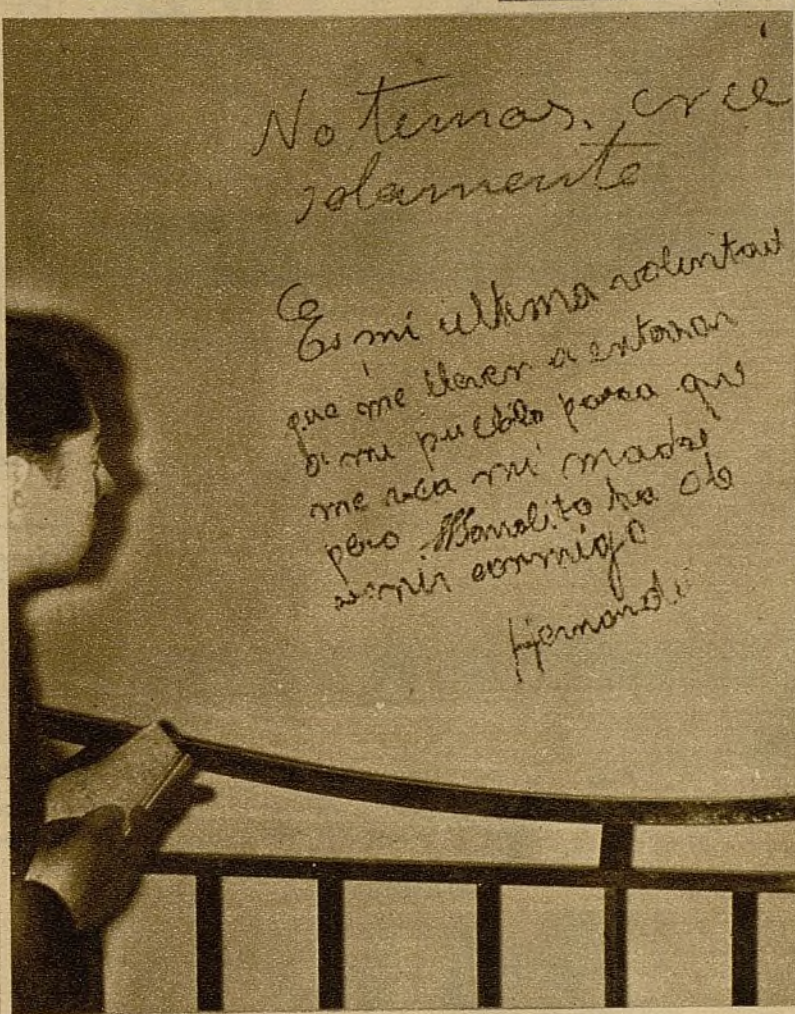 No temas, cree
solamente
Es mi ultima voluntad
que me lleven a enterrar
a mi pueblo para que
me vea mi madre
pero Manolito ha de
venir conmigo